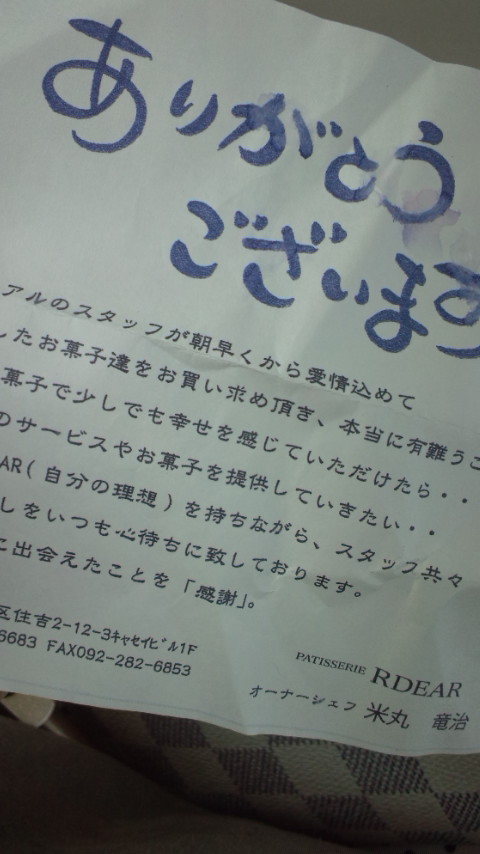 ありがとう
ございます
アルのスタッフが朝早くから愛情込めて
したお菓子達をお買い求め頂き、本当に有難うご
菓子で少しでも幸せを感じていただけたら・・
のサービスやお菓子を提供していきたい・・
AR(自分の理想)を持ちながら、スタッフ共々
しをいつも心待ちに致しております。
に出会えたことを「感謝」。
区住吉2-12-3キャセイビル1F
6683 FAX092-282-6853
PATISSERIE RDEAR
オーナーシェフ 米丸 竜治